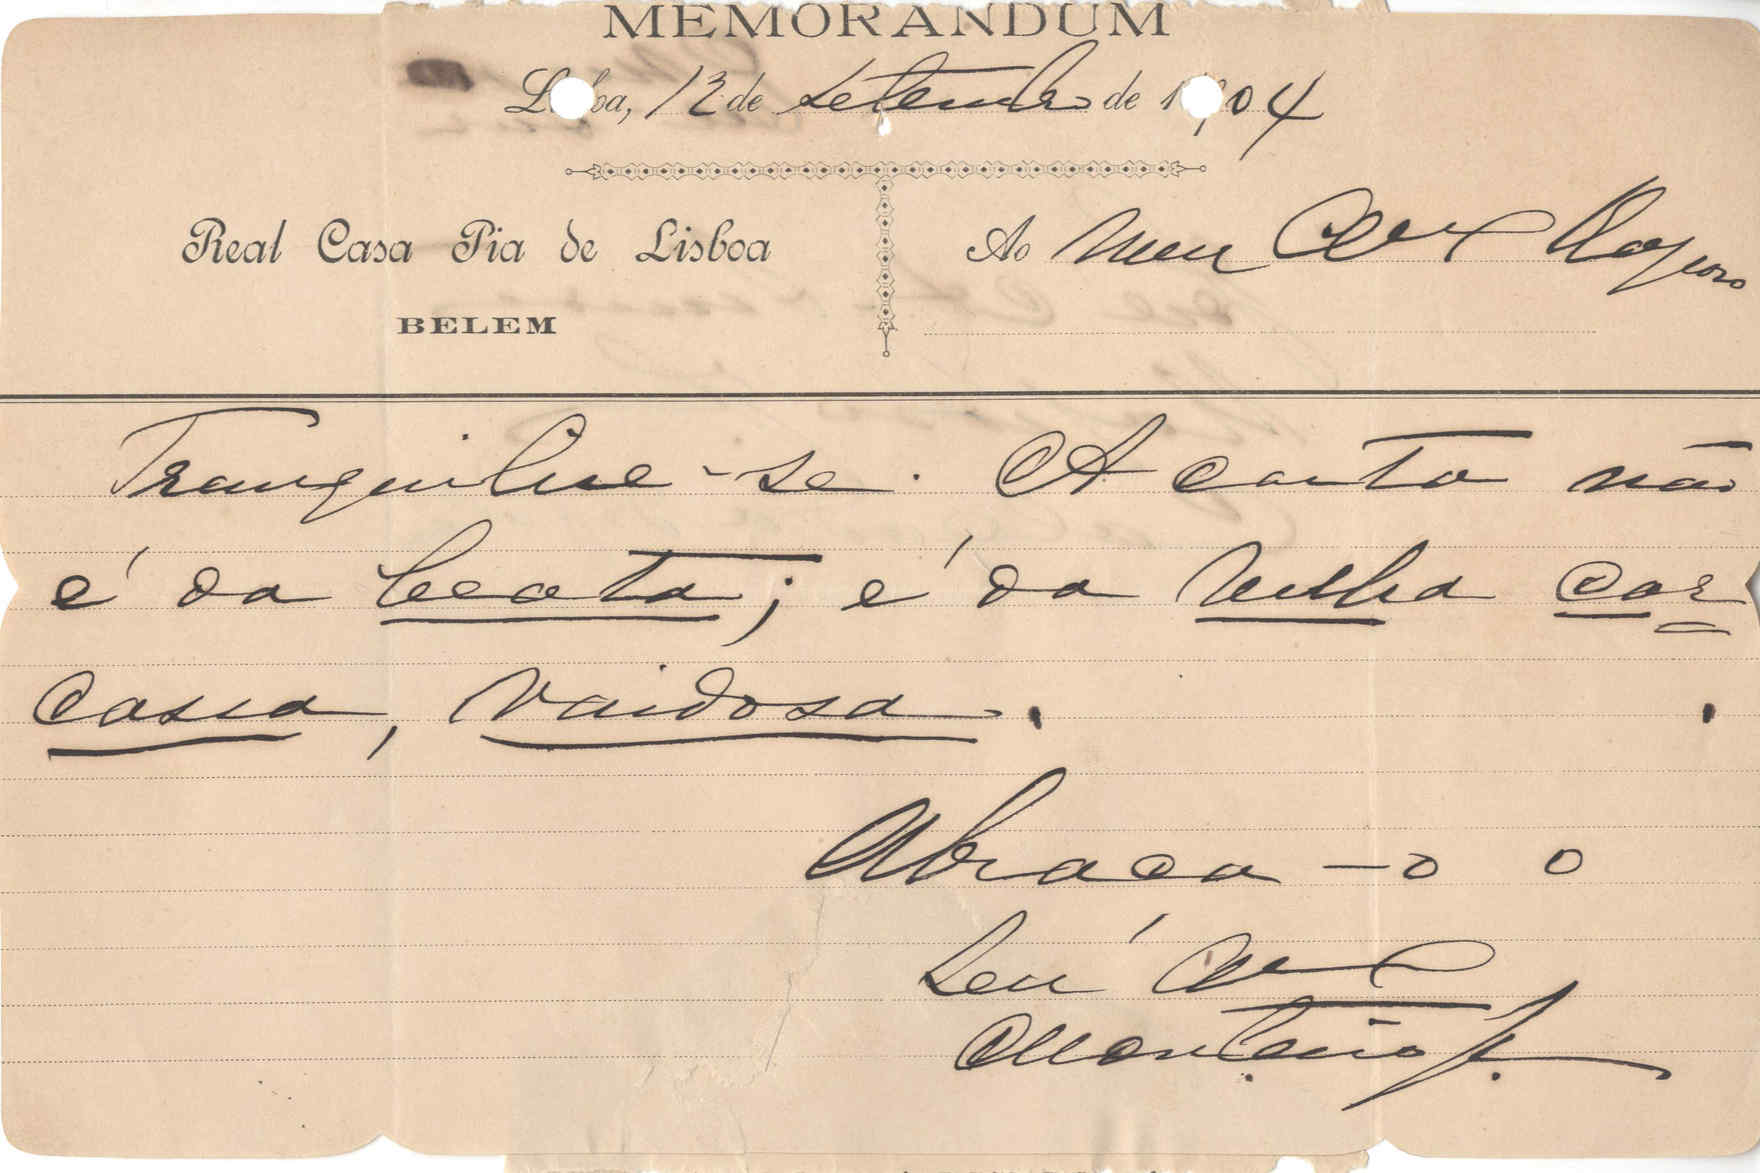 MEMORANDUM
Lisboa, 12 de Setembro de 1904
Real Casa Pia de Lisboa
Ao Meu
BELEM
Tranquilise-se. A carta não
é da beata; é da velha car
cassa, vaidosa.
Abraça-o o
Seu
Monteiro